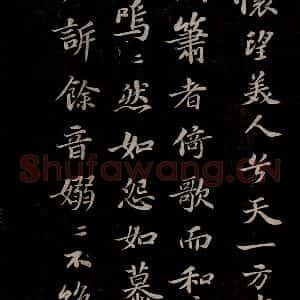 懷望美人兮天一方
簫者倚歌而和
嗚〻然如怨如慕
訴餘音嫋〻不絕
Shufawang.CN